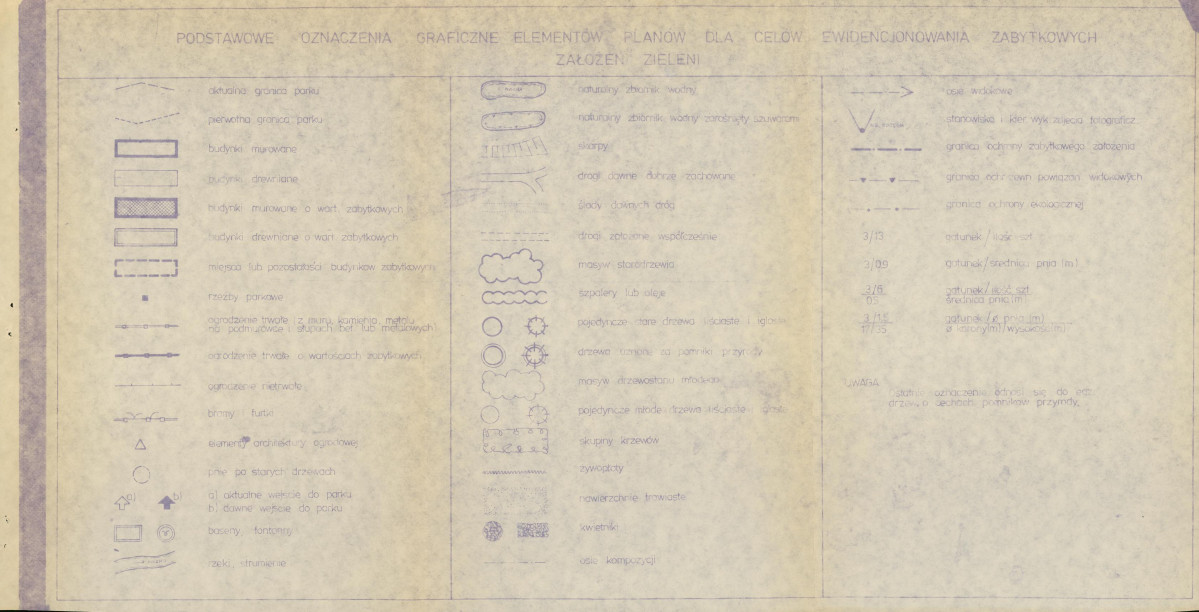 PODSTAWOWE OZNACZENIA GRAFICZNE ELEMENTÓW PLANÓW DLA CELÓW EWIDENCJONOWANIA ZABYTKOWYCH
ZAŁOŻEŃ ZIELENI
aktualna granica parku
pierwotna granica parku
budynki murowane
budynki drewniane
budynki murowane o wart. zabytkowych
budynki drewniane o wart. zabytkowych
miejsca lub pozostałości budynków zabytkowych
rzeźby parkowe
ogrodzenie trwałe (z muru, kamienia, metalu
na podmurówce i słupach bet. lub metalowych)
ogrodzenie trwałe o wartościach zabytkowych
ogrodzenie nietrwałe
bramy, furtki
elementy architektury ogrodowej
pnie po starych drzewach
a) b)
a) aktualne wejście do parku
b) dawne wejście do parku
baseny, fontanny
rzeki, strumienie
naturalny zbiornik wodny
naturalny zbiornik wodny zarośnięty szuwarem
skarpy
drogi dawne dobrze zachowane
ślady dawnych dróg
drogi założone współcześnie
masyw starodrzewia
szpalery lub aleje
pojedyncze stare drzewa liściaste i iglaste
drzewa uznane za pomniki przyrody
masyw drzewostanu młodego
pojedyncze młode drzewa liściaste i iglaste
skupiny krzewów
żywopłoty
nawierzchnie trawiaste
kwietniki
osie kompozycji
osie widokowe
stanowiska i kier. wyk. zdjęcia fotograficz.
granica ochrony zabytkowego założenia
granica ochrzewn powiązań widokowych
granica ochrony ekologicznej
3/13 gatunek/ilość szt.
3/0,9 gatunek/średnica pnia (m)
3/6 gatunek/ilość szt.
0,5 średnica pnia (m)
3/1,5 gatunek/ø pnia (m)
17/35 ø korony(m)/wysokość(m)
UWAGA
ostatnie oznaczenie odnosi się do
drzew o cechach pomników przyrody.